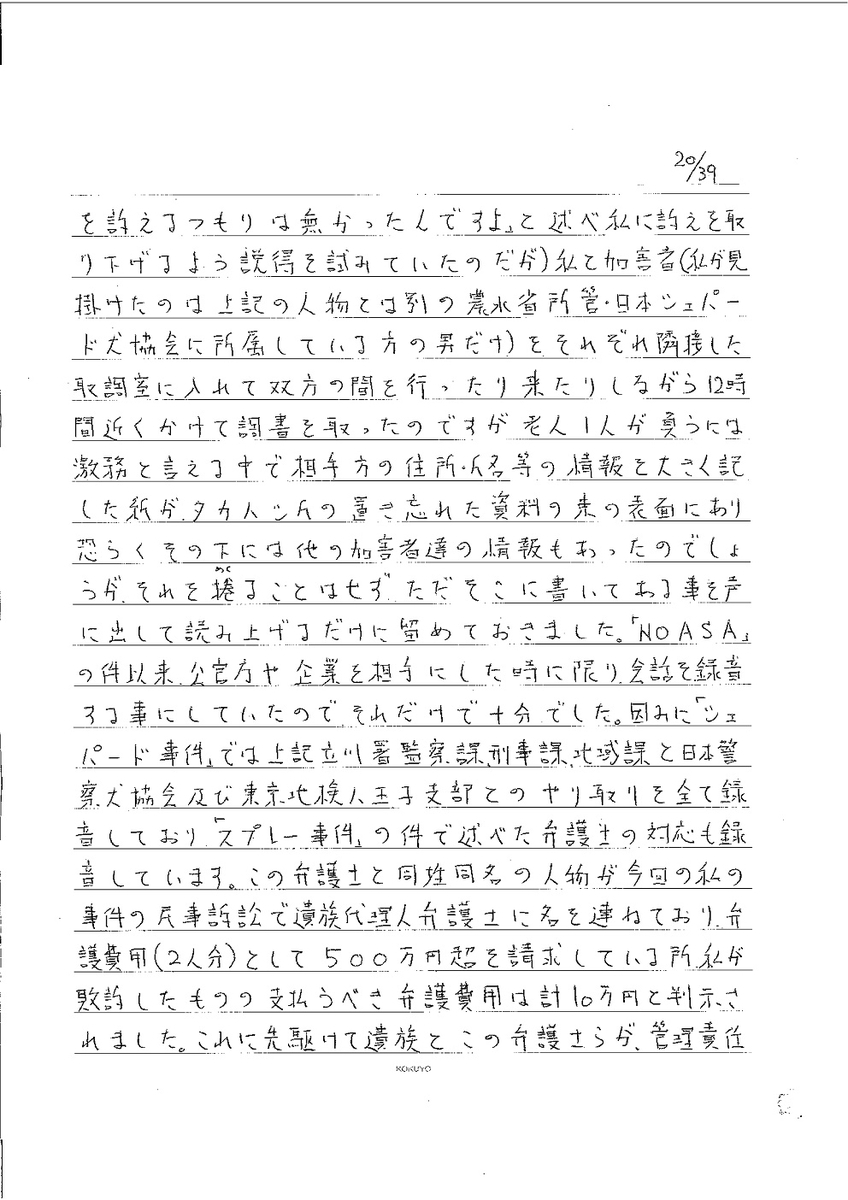 20/39
を訴えるつもりは無かったんですよ」と述べ私に訴えを取
り下げるよう説得を試みていたのだが)私と加害者(私が見
掛けたのは上記の人物とは別の農水省所管・日本シェパー
ド犬協会に所属している方の男だけ)をそれぞれ隣接した
取調室に入れて双方の間を行ったり来たりしながら12時
間近くかけて調書を取ったのですが老人1人が負うには
激務と言える中で相手方の住所・氏名等の情報を大きく記
した紙が、タカハシ氏の置き忘れた資料の束の表面にあり
恐らくその下には他の加害者達の情報もあったのでしょ
うが、それを捲ることはせず、ただそこに書いてある事を声
めく
に出して読み上げるだけに留めておきました。「NOASA」
の件以来、公官庁や企業を相手にした時に限り、会話を録音
する事にしていたので、それだけで十分でした。因みに「シェ
パード事件」では上記立川署監察課、刑事課、地域課と日本警
察犬協会及び東京地検八王子支部とのやり取りを全て録
音しており、「スプレー事件」の件で述べた弁護士の対応も録
音しています。この弁護士と同姓同名の人物が今回の私の
事件の民事訴訟で遺族代理人弁護士に名を連ねており、弁
護費用(2人分)として500万円超を請求している所、私が
敗訴したものの支払うべき弁護費用は計10万円と判示さ
れました。これに先駆けて遺族とこの弁護士らが、管理責任
KOKUYO